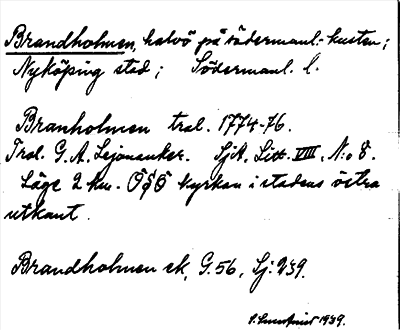 Brandholmen, halvö på södermanl.-kusten;
Nyköping stad; Södermanl. l.
Branholmen tral. 1774-76.
Trol. G. A. Lejonanker. SjA, Litt. VIII, No 8.
Läge 2 km. ÖSÖ kyrkan i stadens östra
utkant.
Brandholmen ek, G. 56, Sj. 239.
1939.